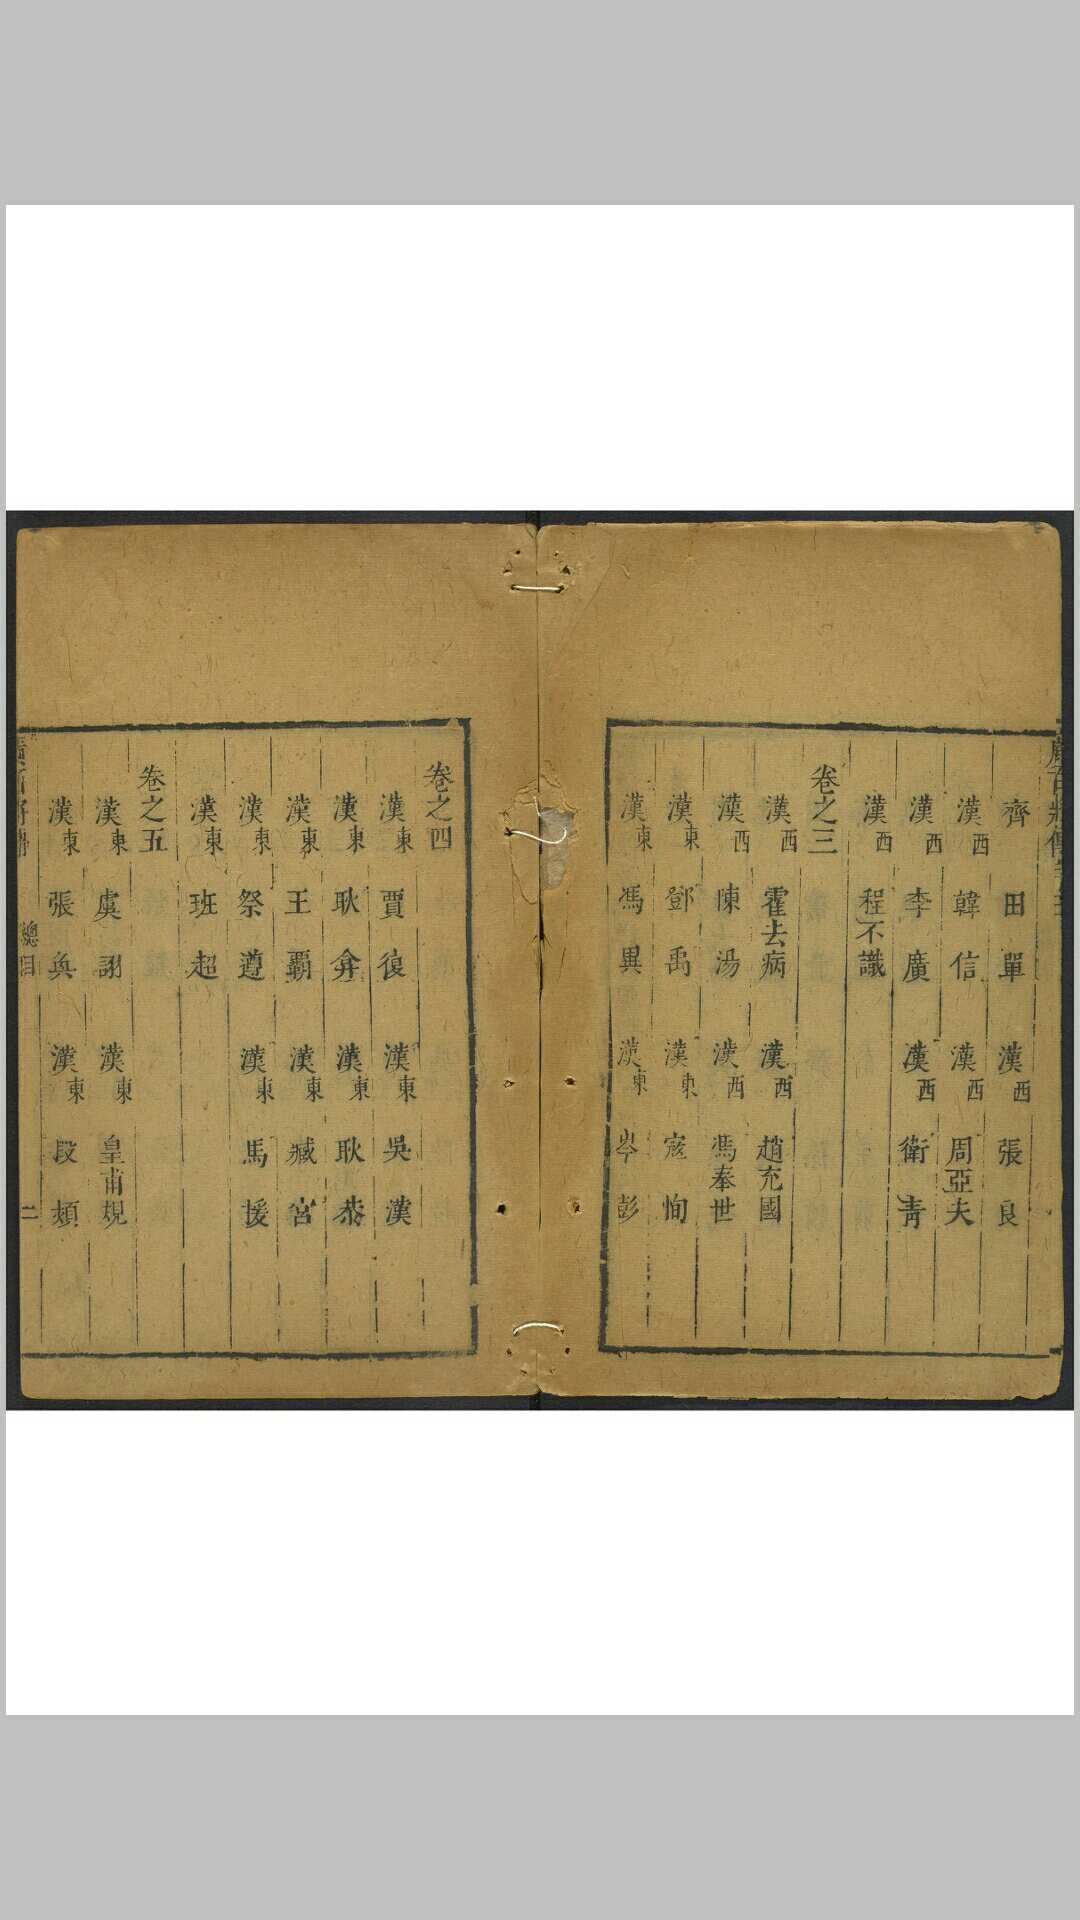 齊 田單 漢西 張良
漢西 韓信 漢西 周亞夫
漢西 李廣 漢西 衛青
漢西 程不識
卷之三
漢西 霍去病 漢西 趙充國
漢西 陳湯 漢西 馮奉世
漢東 鄧禹 漢東 寇恂
漢東 馮異 漢東 岑彭
卷之四
漢東 賈復 漢東 吳漢
漢東 耿弇 漢東 耿恭
漢東 王霸 漢東 臧宮
漢東 祭遵 漢東 馬援
漢東 班超
卷之五
漢東 虞詡 漢東 皇甫規
漢東 張奐 漢東 段熲
總目 二